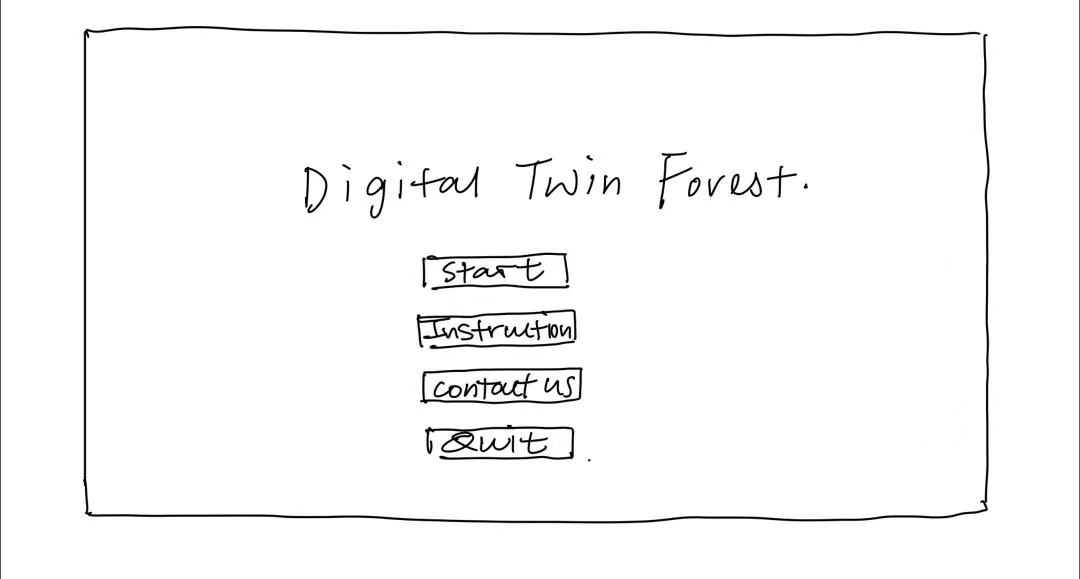 Digital Twin Forest.
Start
Instruction
contact us
Quit